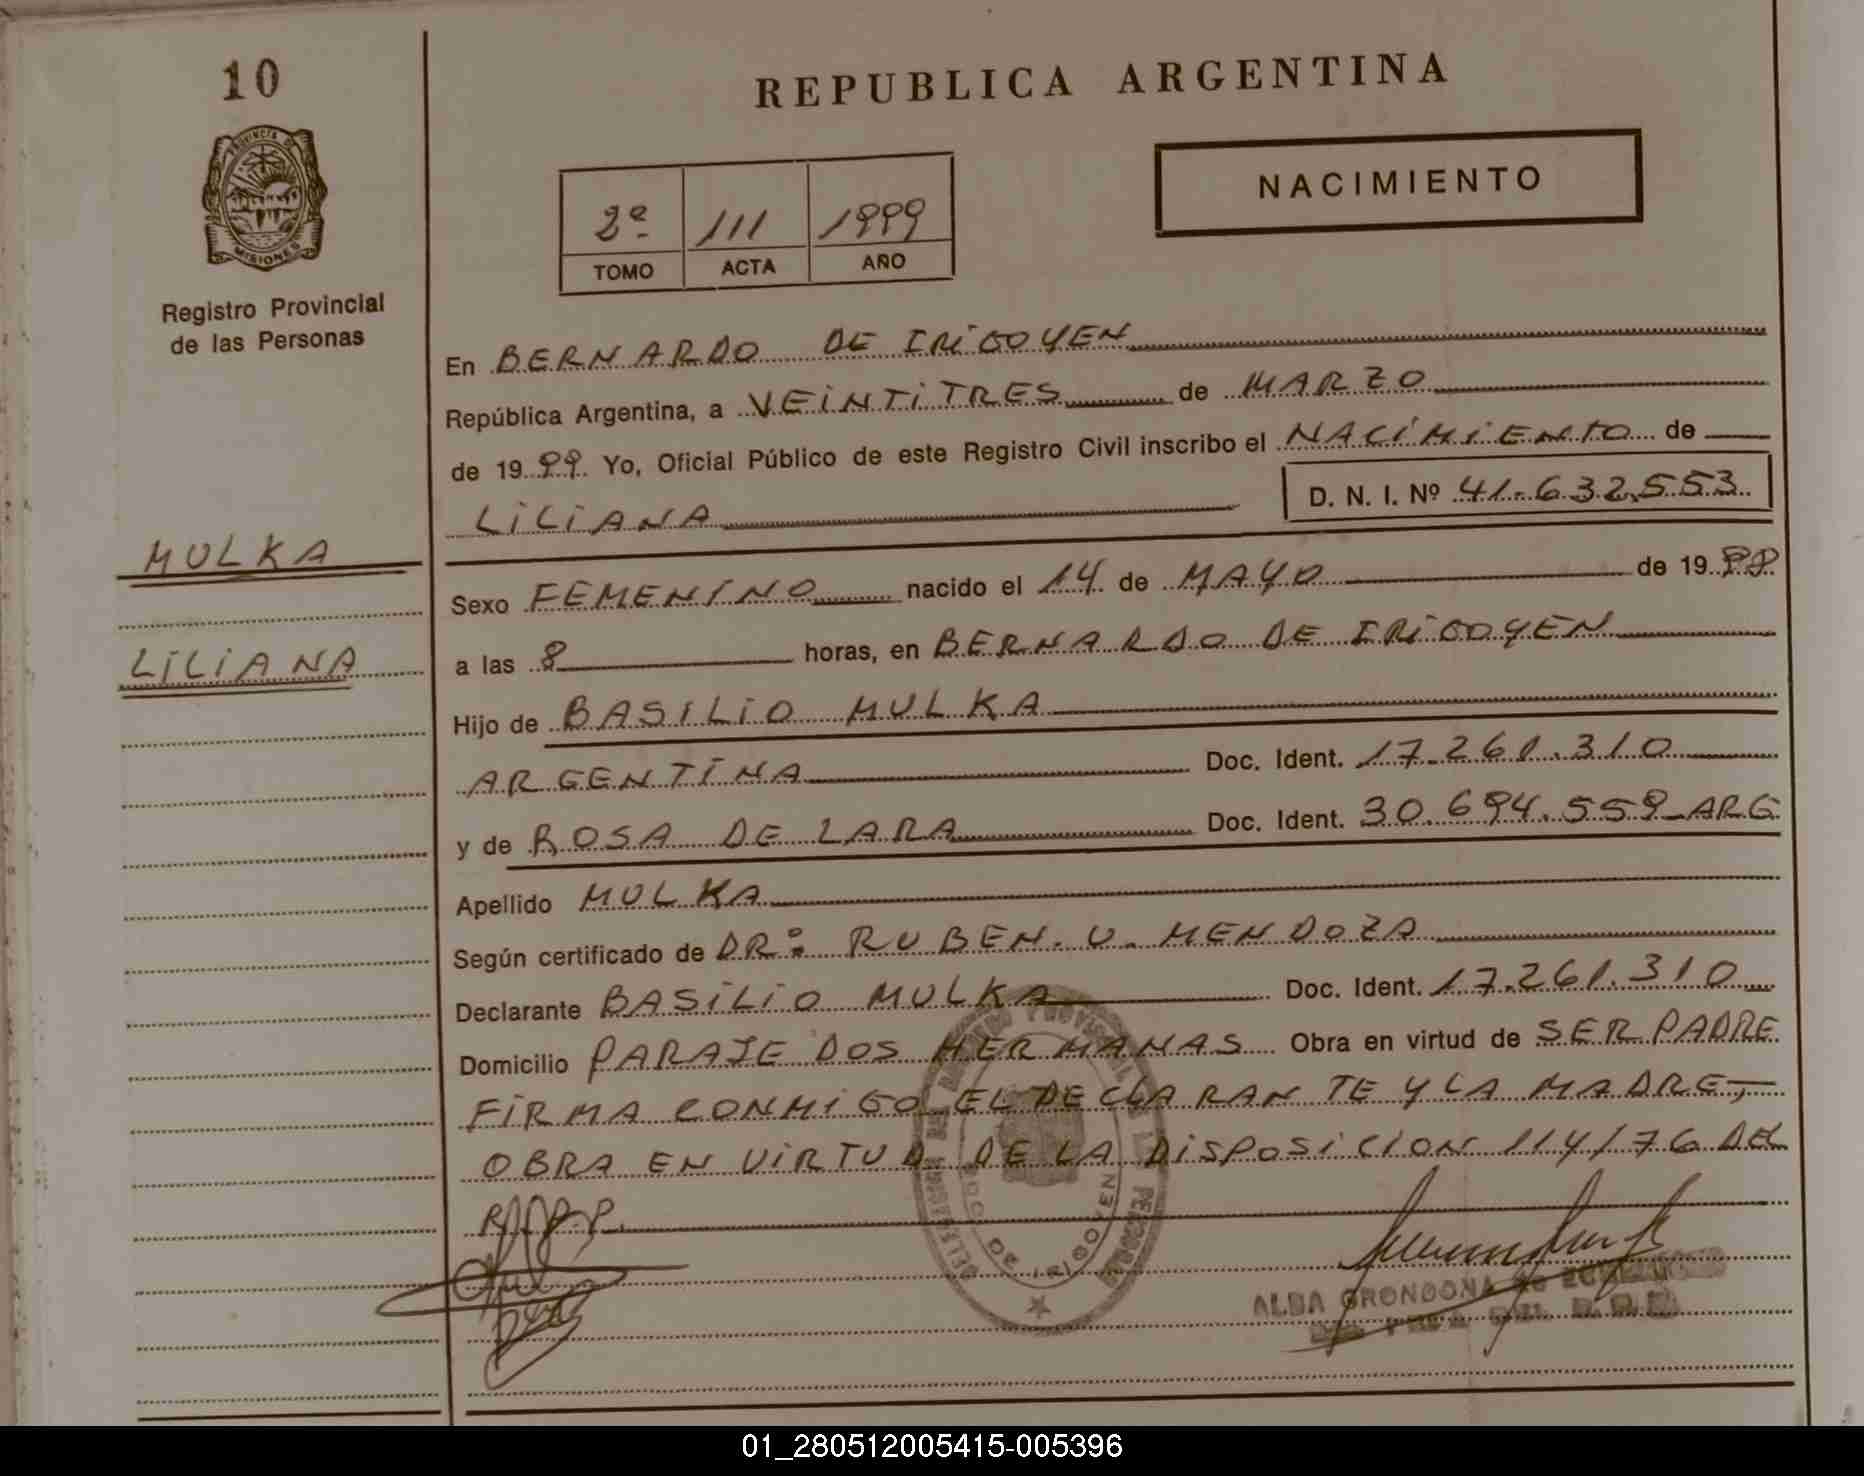 10
PROVINCIA DE
MISIONES
Registro Provincial
de las Personas
MULKA
LILIANA
REPUBLICA ARGENTINA
NACIMIENTO
2º 111 1999
TOMO ACTA AÑO
En BERNARDO DE IRIGOYEN
República Argentina, a VEINTITRES de MARZO
de 1999 Yo, Oficial Público de este Registro Civil inscribo el NACIMIENTO de
LILIANA D. N. I. Nº 41.632.553
Sexo FEMENINO nacido el 14 de MAYO de 19
a las 8 horas, en BERNARDO DE IRIGOYEN
Hijo de BASILIO MULKA
ARGENTINA Doc. Ident. 17.261.310
y de ROSA DE LARA Doc. Ident. 30.694.559 ARG
Apellido MULKA
Según certificado de DR: RUBEN. U. MENDOZA
Declarante BASILIO MULKA Doc. Ident. 17.261.310
Domicilio PARAJE DOS HERMANAS Obra en virtud de SER PADRE
FIRMA CONMIGO EL DECLARANTE Y LA MADRE,
OBRA EN VIRTUD DE LA DISPOSICION 114/76 DEL
R.P.P.
BDO. DE IRIGOYEN
ALBA GRONDONA
01_280512005415-005396